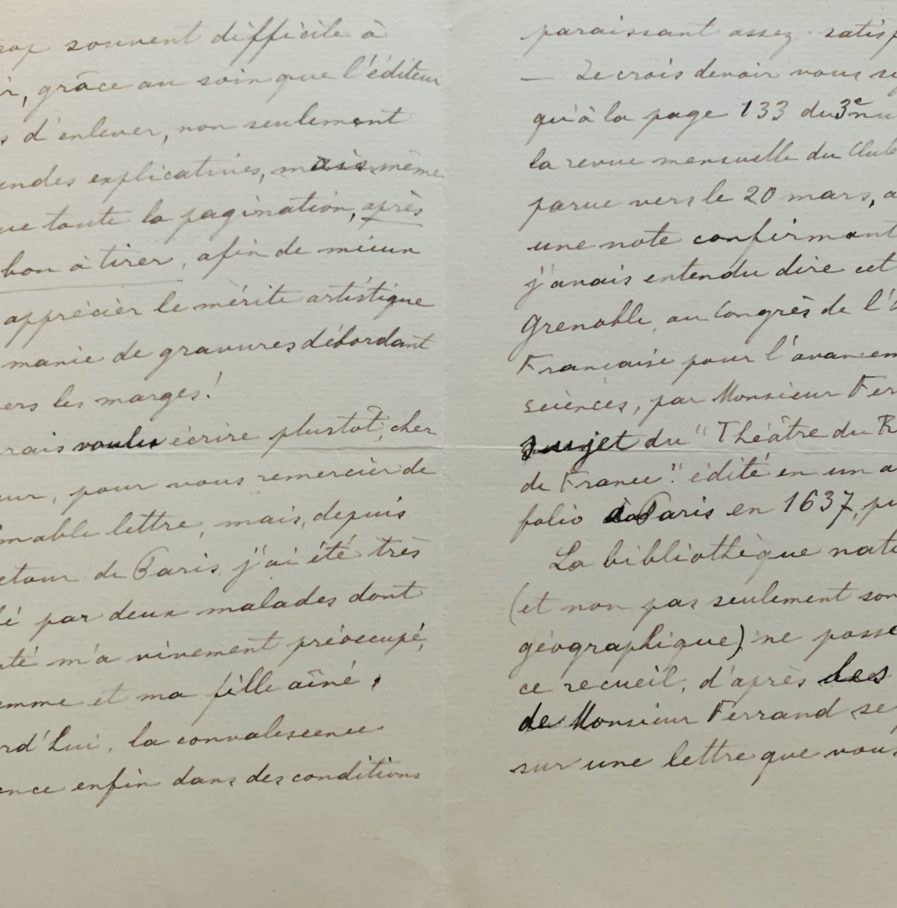 souvent difficile à
grâce au soin que l'éditeur
d'enlever, non seulement
explicatives, mais même
toute la pagination, après
bon à tirer, afin de mieux
apprécier le mérite artistique
manie de gravures débordant
les marges!
voulu écrire plustôt, cher
pour vous remercier de
lettre, mais, depuis
de Paris, j'ai été très
par deux malades dont
m'a vivement préoccupé,
et ma fille aîné,
rd'Lui, la convalescence
enfin dans des conditions
paraissant assez satisf
— Je crois devoir vous
qu'à la page 133 du 3e nu
la revue mensuelle du Club
parue vers le 20 mars, a
une note confirmant
j'avais entendu dire cet
Grenoble, au Congrès de l'
Française pour l'avancem
sciences, par Monsieur Fer
sujet du "Théâtre du R
de France". édité en un
folio à Paris en 1637, pu
La bibliothèque nati
(et non pas seulement son
géographique) ne posse
ce recueil, d'après les
de Monsieur Ferrand se
sur une lettre que vous